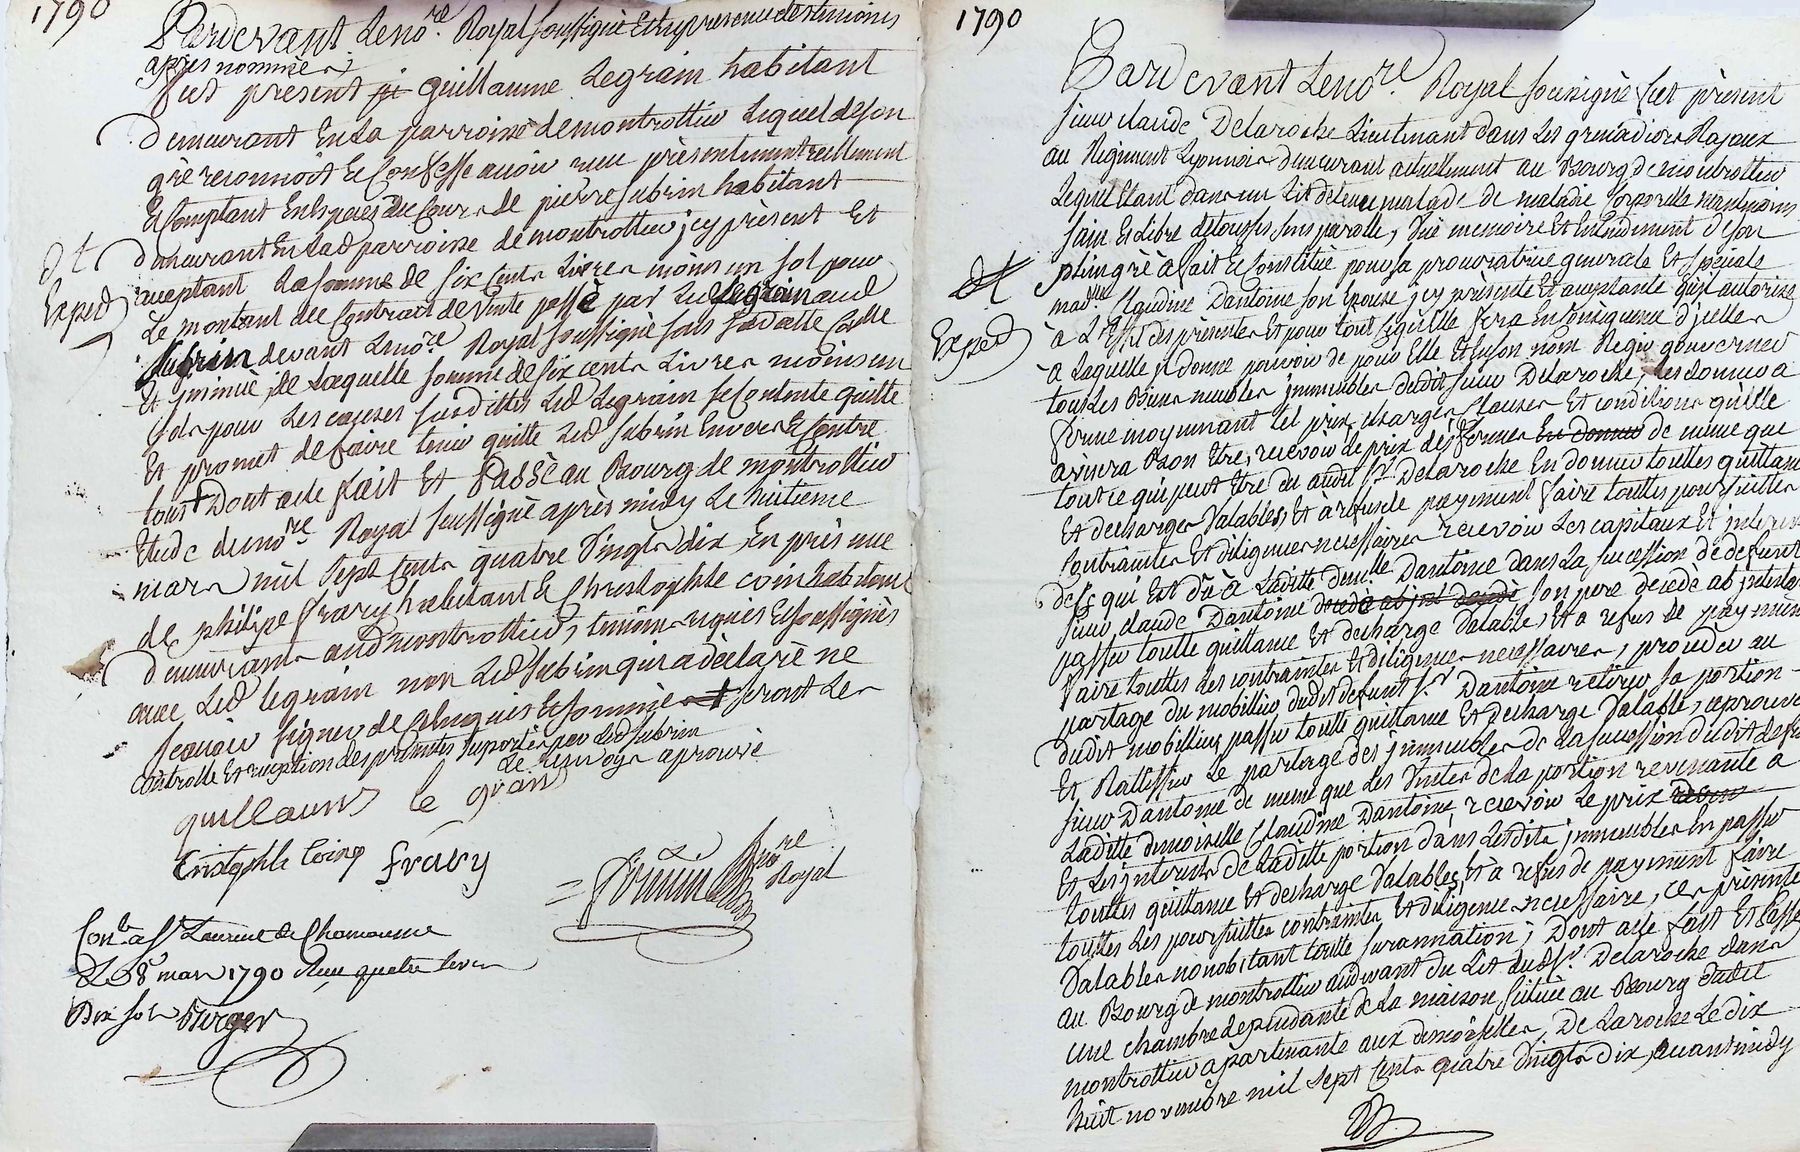 1790
Pardevant Le no.re Royal soussigné Et En presence des temoins
apres nommés
fut présent guillaume Legrain habitant
demeurant En La parroisse de montrottier Lequel de son
gré reconnoit Et Confesse avoir reçu présentement reellement
Et Comptant En Espèces du Cours de pierre subrin habitant
demeurant En Lad parroisse de montrottier jcy présent Et
acceptant La somme de six Cents Livres moins un sol pour
Le montant du Contract de Vente passé par Led Legrain aud
subrin devant Le no.re Royal soussigné sous sa datte Controllé
Et insinué, de Laquelle somme de six cents Livres moins un
sol pour Les causes susdittes Led Legrain se Contente quitte
Et promet de faire tenir quitte Led subrin Envers Et Contre
tous + Dont acte fait Et Passé au Bourg de montrottier
Etude du no.re Royal soussigné après midy Le huitieme
mars mil sept Cents quatre Vingts dix, En présence
de philipe frary habitant Et Christophle coin habitant
demeurants aud montrottier, témoins requis Et soussignés
avec Led Legrain non Led subrin qui a déclaré ne
scavoir signer de Ce Enquis Et sommé + seront Les
Controlle Et Expedition des présentes suportés par Led subrin
Le Renvoy aprouvé
dt
Exped
guillaume le grain
Cristophle Coing frary
no.re Royal
Con.le a S.t Laurent de Chamousset
Le 8 mars 1790 Reçu quatre Livres
Dix sols Berger
1790
Pardevant Le no.re Royal soussigné fut présent
sieur claude Delaroche Lieutenant dans Les grenadiers Royaux
au Régiment Lyonnois demeurant actuellement au Bourg de montrottier
Lequel Etant dans un Lit detenu malade de maladie Corporelle neantmoins
sain Et Libre de tous ses sens parolle, Vüe memoire Et Entendement de son
plein gré a fait Et Constitué pour sa procuratrice generale Et speciale
mad.lle Claudine Dantoine son Epouse jcy présente Et acceptante qu'il autorise
à L'Effet des présentes Et pour tout Ce qu'elle fera En Conséquence d'jcelles
à Laquelle jl donne pouvoir de pour Elle Et En son nom Regir gouverner
tous Les Biens meubles jmmeubles dudit sieur Delaroche, Les donner a
ferme moyennant tel prix, charges Clauses Et conditions qu'elle
avisera Bon Etre, recevoir Le prix des fermes En donner de même que
tout ce qui peut Etre du audit S.r Delaroche En donner touttes quittances
Et decharges Valables, Et à refus de payement faire touttes poursuittes
Contraintes Et diligences necessaires recevoir Les capitaux Et jnterets
de Ce qui Est dû à Laditte dem.lle Dantoine dans La succession de defunt
sieur claude Dantoine decedé ab jnt decedé son pere decedé ab jntestat
passer toutte quittance Et decharge Valable, Et a refus de payement
faire touttes Les contraintes Et diligences necessaires, proceder au
partage du mobilier dudit defunt S.r Dantoine retirer sa portion
dudit mobilier, passer toutte quittance Et decharge Valable, aprouver
Et Ratiffier Le partage des jmmeubles de La succession dudit defunt
sieur Dantoine de même que Les Ventes de La portion revenante a
Laditte demoiselle Claudine Dantoine, recevoir Le prix
Et Les jnterets de Laditte portion dans Lesdits jmmeubles En passer
touttes quittance Et decharge Valables, Et a refus de payement faire
touttes Les poursuittes contraintes Et diligence necessaire, Ces présentes
Valables nonobstant toutte surannation; Dont acte fait Et Passé
au Bourg de montrottier audevant du Lit dud S.r Delaroche dans
une chambre dependante de La maison située au Bourg dudit
montrottier apartenante aux demoiselles Delaroche Le dix
huit novembre mil sept Cents quatre Vingts dix, avant midy
dt
Exped